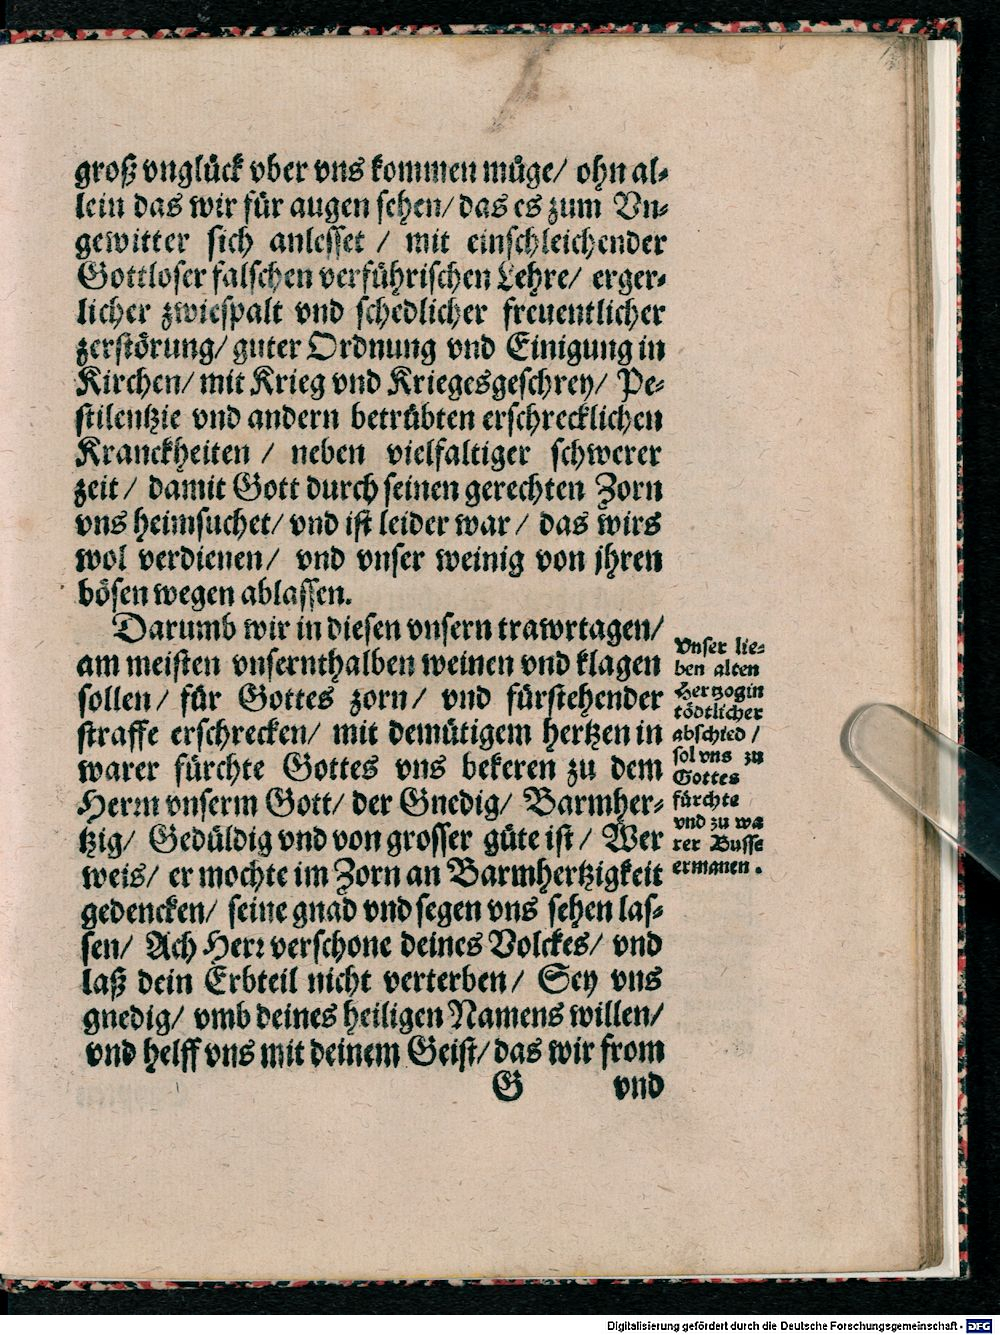 groß vnglück vber vns kommen müge/ ohn al⸗
lein das wir für augen sehen/ das es zum Vn⸗
gewitter sich anlesset / mit einschleichender
Gottloser falschen verführischen Lehre/ erger⸗
licher zwiespalt vnd schedlicher freuentlicher
zerstörung/ guter Ordnung vnd Einigung in
Kirchen/ mit Krieg vnd Kriegesgeschrey/ Pe⸗
stilentzie vnd andern betrübten erschrecklichen
Kranckheiten / neben vielfaltiger schwerer
zeit / damit Gott durch seinen gerechten Zorn
vns heimsuchet/ vnd ist leider war / das wirs
wol verdienen/ vnd vnser weinig von jhren
bösen wegen ablassen.
Darumb wir in diesen vnsern trawrtagen/
am meisten vnsernthalben weinen vnd klagen
sollen/ für Gottes zorn/ vnd fürstehender
straffe erschrecken/ mit demütigem hertzen in
warer fürchte Gottes vns bekeren zu dem
Herrn vnserm Gott/ der Gnedig/ Barmher⸗
tzig/ Gedüldig vnd von grosser güte ist / Wer
weis/ er mochte im Zorn an Barmhertzigkeit
gedencken/ seine gnad vnd segen vns sehen las⸗
sen/ Ach Herr verschone deines Volckes/ vnd
laß dein Erbteil nicht verterben/ Sey vns
gnedig/ vmb deines heiligen Namens willen/
vnd helff vns mit deinem Geist/ das wir from
G vnd
Vnser lie⸗
ben alten
Hertzogin
tödtlicher
abschied /
sol vns zu
Gottes
fürchte
vnd zu wa
rer Busse
ermanen.
Digitalisierung gefördert durch die Deutsche Forschungsgemeinschaft - DFG